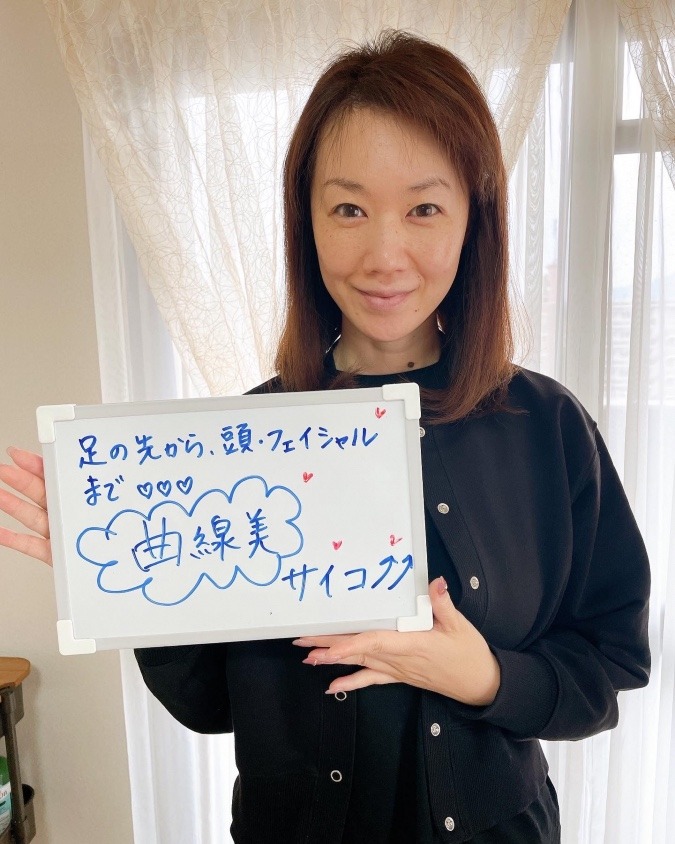 足の先から、頭・フェイシャル
まで♡♡♡
曲線美
サイコ↗↗